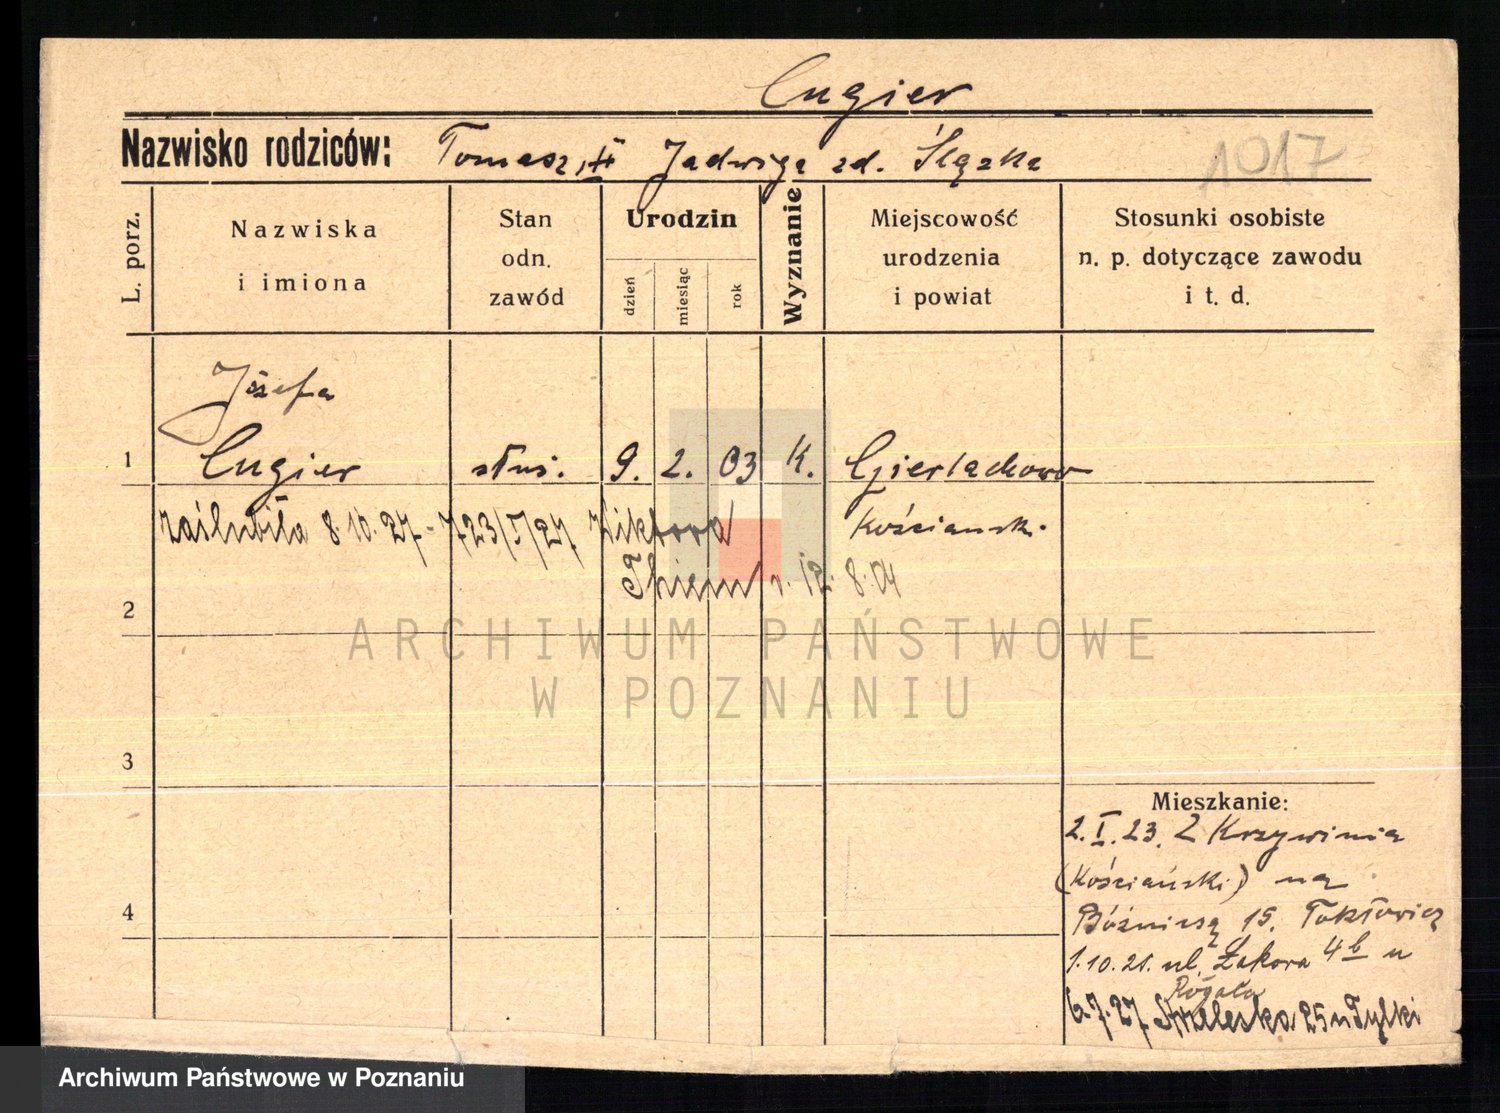 Cugier
Nazwisko rodziców: Tomasz, # Jadwiga zd. Ślązka
1017
L. porz.
Nazwiska
i imiona
Stan
odn.
zawód
Urodzin
dzień
miesiąc
rok
Wyznanie
Miejscowość
urodzenia
i powiat
Stosunki osobiste
n. p. dotyczące zawodu
i t. d.
Józefa
1 Cugier służ. 9. 2. 03 K. Gierłachowo
zaślubiła 8.10.27 - 723/I/27. Wiktora Kościańsk.
Thiem r. 12.8.04
2
ARCHIWUM PAŃSTWOWE
W POZNANIU
3
Mieszkanie:
2.I.23. Z Krzywinia
(Kościański) na
4
Bóżniczą 15.
1.10.21. ul. 4b u
Rogala
6.7.27. Strzelecka 25 u Tylki
Archiwum Państwowe w Poznaniu